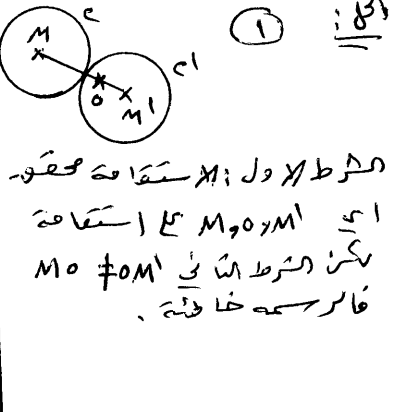 الحل :
1
C
M
C'
O
M'
الشرط الاول : الاستقامة محقق
اي M, O, M' على استقامة
لكن الشرط الثاني MO ≠ OM'
فالرسمة خاطئة .